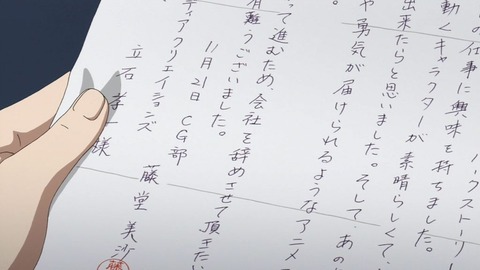 の仕事に興味を持ちました。ハ
動くキャラクターが素晴らしくて、
出来たらと思いました。そして、あの
や勇気が届けられるようなアニメ
って進むため、会社を辞めさせて頂きたい
有難うございました。
11月21日 CG部 藤堂美沙
ティアクリエイションズ
立石 孝一様
藤